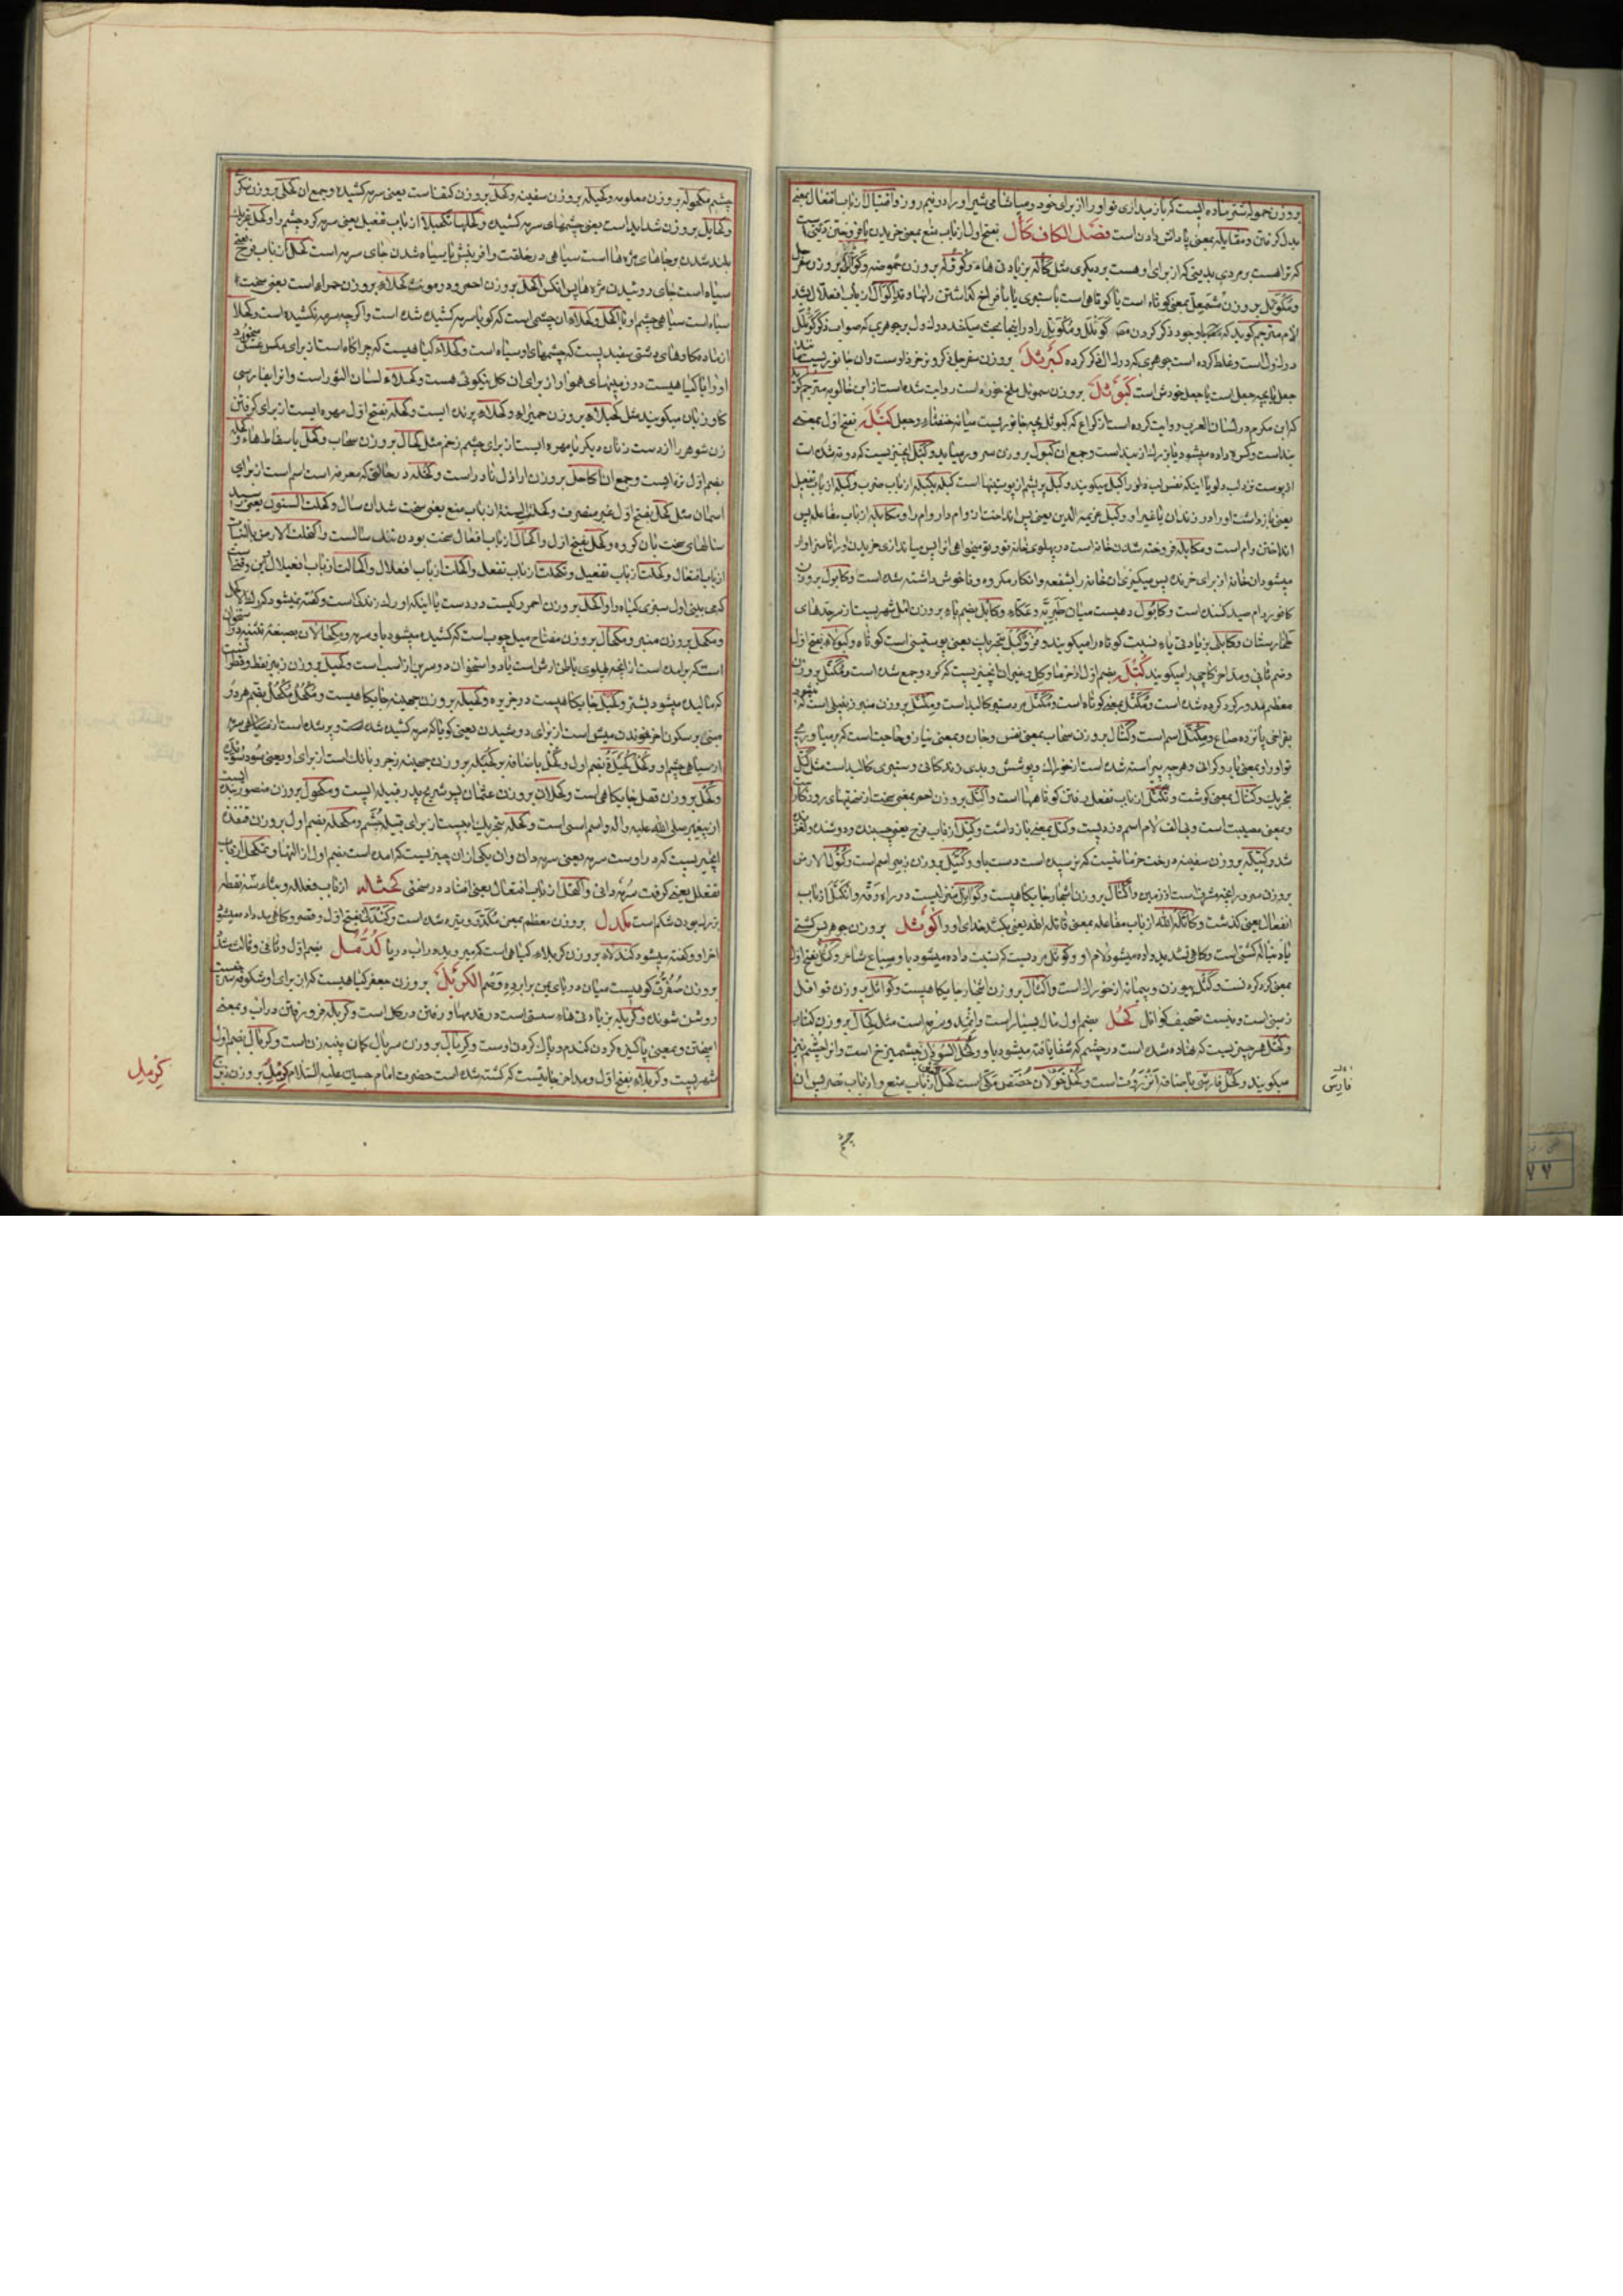 بروزن حموله شتر ماده ایست که باز میداری تو او را از برای خود و میاشامی شیر او را در نیم روز و اقتیال از باب افتعال بمعنی
بدل کرفتن و مقایله بمعنی پاداش دادن است فصل الکاف کأل بفتح اول از باب منع بمعنی خریدن یا فروختن دینی است
که تراهست بر مردی بدینی که از برای او هست بر دیکری مثل کأله بزیادتی هاء و کؤلة بروزن حموضه
و مکوئل بروزن مشمعل بمعنی کوتاه است یا کوتاهی است با ستبری یا با فراخ کذاشتن رانها
لام مترجم کوید که
در اول است و غلط کرده است جوهری که در دال ذکر کرده کبرتل بروزن سفرجل نر خرد اوست و ان جانوریست
جعل یا بچه جعل است یا جعل خودش است کبوثل بروزن سموئل ملخ خوره است روایت شده است از ابن خالویه مترجم کوید
که ابن مکرم در لسان العرب روایت کرده است از کراع که کبوثل بچه جانوریست میانه خنفساء و جعل کبل بفتح اول بمعنی
بند است و کسر داده میشود یا بزرك از بند است و جمع ان کبول بروزن سرور میاید و کبل چیزیست که دوته شده است
از پوست نزد لب دلو یا اینکه نفس لب دلو را کبل میکویند و کبل پر پشم از پوستینها است کبله یکبله از باب ضرب و کبله از باب تفعیل
یعنی بازداشت او را در زندان یا غیر او و کبل غریمه الدین یعنی پس انداختن از وام دار وام را و مکابله از باب مفاعله پس
انداختن وام است و مکابله فروخته شدن خانه است در پهلوی خانه تو و تو میخواهی انرا پس میاندازی خریدن او را تا سزاوار
میشود ان خانه از برای خرنده پس میکیری ان خانه را بشفعه و انکار مکروه و ناخوش داشته شده است و کابول بروزن
کافور دام صید کننده است و کابول دهیست میان طبریه و عکاء و کابل بضم باء بروزن امل شهریست از سرحدهای
طخارستان و کابلی بزیادتی یاء نسبت کوتاه را میکویند و فرو کبل بتحریك یعنی پوستینی است کوتاه و کبولاء بفتح اول
و ضم ثانی و مد اخر کاچی را میکویند کتل بضم اول از خرما و کل و غیر ان چیزیست که کرد و جمع شده است و مکتل بروزن
معظم مدور کرد کرده شده است و مکتل بمعنی کوتاه است و مکتل پر درستی کالبد است و مکتل بروزن منبر زنبیلی است که میکنجد
بفراخی پانزده صاع و مکتل اسم است و کتال بروزن سحاب بمعنی نفس و جان و بمعنی نیاز و حاجت است که بر میاوری
تو او را و بمعنی بار و کرانی و هر چه پیراسته شده است از خوراك و پوشش و بدی زندکانی و ستبری کالبد است مثل کتل
بتحریك و کتال بمعنی کوشت و تکتل از باب تفعل رفتن کوتاههاا است و اکتل بروزن احمر بمعنی سخت از سختیهای روزکار
و بمعنی مصیبت است و بی الف لام اسم دزدیست و کتل بمعنی بازداشت و کتل از باب فرح یعنی چسبنده و دوشنده و لغزنده
شد و کتیله بروزن سفینه درخت خرمائیست که نرسیده است دست باو و کتیل بروزن زبیر اسم است و کتول الارض
بروزن سرور انچه مشرف است از زمین و اکتال بروزن اشجار جایکاهیست و کواتل منزلیست در راه رقه و انکتل از باب
انفعال یعنی کذشت و کاتله الله از باب مفاعله بمعنی قاتله الله یعنی بکشد خدای او را کوثل بروزن جوهر پس کشتی
یا دنباله کشتی است و کاهی تشدید داده میشود لام او و کوثل مردیست که نسبت داده میشود باو سباع شاعر و کثل بفتح اول
بمعنی کرد کردنست
زمینی است و نیست تصحیف کواتل کحل بضم اول مال بسیار است و اثمد و سرمه است مثل کحال بروزن کتاب
و کحل هر چیزیست که نهاده شده است در چشم که شفا یافته میشود باو و کحل السودان چشمیزخ است و انرا چشم نیز
میکویند و کحل فارسی باضافه انزروت است و کحل خولان حضض مکی است کحل از باب منع و از باب نصر پس ان
فارسی
چشم مکحوله بروزن معلومه و کحیله بروزن سفینه و کحل بروزن کتف است یعنی سرمه کشیده و جمع ان کحلی بروزن سکری
و کحایل بروزن شداید است یعنی چشمهای سرمه کشیده و کحلها تکحیلا از باب تفعیل یعنی سرمه کرد چشم را و کحل بتحریك
بلند شدن و جاهای مژه هااست سیاهی در خلقت و افرینش یا سیاه شدن جای سرمه است کحل از باب فرح یعنی
سیاه است جای روئیدن مژه ها پس انکس اکحل بروزن احمر و مونث کحلاء بروزن حمراء است یعنی سخت
سیاه است سیاهی چشم او یا اکحل و کحلاء ان چشمی است که کویا سرمه کشیده شده است و اکرچه سرمه نکشیده است و کحلا
از ماده کاوهای دشتی سفیدیست که چشمهای او سیاه است و کحلاء کیاهیست که چراکاه است از برای مکس عسل میخورد
او را یا کیاهیست در زمینهای هموار از برای ان کل نیکوئی هست و کحلاء لسان الثور است و انرا بفارسی
کاوزبان میکویند مثل کحیلاء بروزن حمیراء و کحلاء پرنده ایست و کحله بفتح اول مهره ایست از برای کرفتن
زن شوهر را از دست زنان دیکر یا مهره ایست از برای چشم زخم مثل کحال بروزن سحاب و کحل باسقاط هاء و کحله
بضم اول تره ایست و جمع ان اکاحل بروزن اراذل نادر است و کحله در حالتی که معرفه است اسم است از برای
اسمان مثل کحل بفتح اول غیر منصرف و کحلت السنة از باب منع یعنی سخت شد ان سال و کحلت السنون یعنی رسید
سالهای سخت بان کروه و کحل بفتح اول و اکحال از باب افعال سخت بودن تنك سالست و اکتحلت الارض بالنبات
از باب افتعال و کحلت از باب تفعیل و تکحلت از باب تفعل و اکحلت از باب افعلال و اکحالت از باب افعیلال این وقتی است
که می بینی اول سبزی کیاه را و اکحل بروزن احمر رکیست در دست یا اینکه او رك زندکی است و کفته نمیشود عرق الاکحل
و مکحل بروزن منبر و مکحال بروزن مفتاح میل چوب است که کشیده میشود باو سرمه و مکحالان بصیغه تثنیه دو استخوان
است که برامده است
که مالیده میشود بشتر و کحیل جایکاهیست در جزیره و کحیله بروزن جهینه جایکاهیست و مکحل مکحل بضم هر دو
مبنی بر سکون اخر خواندن میش است از برای دوشیدن یعنی کویا که سرمه کشیده شده است و پر شده است از سیاهی سرمه
از سیاهی چشم او و کحل کحیلة بضم اول و کحل باضافه بر کحیله بروزن جهینه زجر و بانك است از برای او
و کحل بروزن قصل جایکاهی است و کحلان بروزن عثمان پسر شریح پدر قبیله ایست و مکحول بروزن منصور بنده ایست
از پیغمبر صلی الله علیه واله و اسم اسبی است و کحله بتحریك ابیست از برای قبیله جشم و مکحله بضم اول بروزن قنفذه
انچیزیست که در اوست سرمه یعنی سرمه دان و ان یکی از ان چیزیست که امده است بضم اول از التها و تمکحل از باب
تفعلل یعنی کرفت سرمه دانی و اکتحل از باب افتعال یعنی افتاد در سختی کحثله از باب فعلله و بثاء سه نقطه
بزرك بودن شکم است مکدل بروزن معظم بمعنی مکدر و تیره شده است و کندلی بفتح اول و قصر و کاهی مد داده میشود
اخر او و کفته میشود کندلاء بروزن کربلاء کیاهی است که میروید در اب دریا کدمل بضم اول و ثانی و ثالث مثل
بروزن صفرق کوهیست میان دریای یمن برابر ده وصم الکربل بروزن جعفر کیاهیست که از برای او شکوفه سرخ
روشن شونده و کربله بزیادتی هاء سستی است در قدمها و رفتن در کل است و کربله فرو رفتن در اب و بمعنی
امیختن و بمعنی پاکیزه کردن کندم و پاك کردن اوست و کربال بروزن سربال کمان پنبه زن است و کربال بضم اول
شهریست و کربلاء بفتح اول و مد اخر جائیست که کشته شده است حضرت امام حسین علیه السلام کرمل بروزن زبرج
کرمل